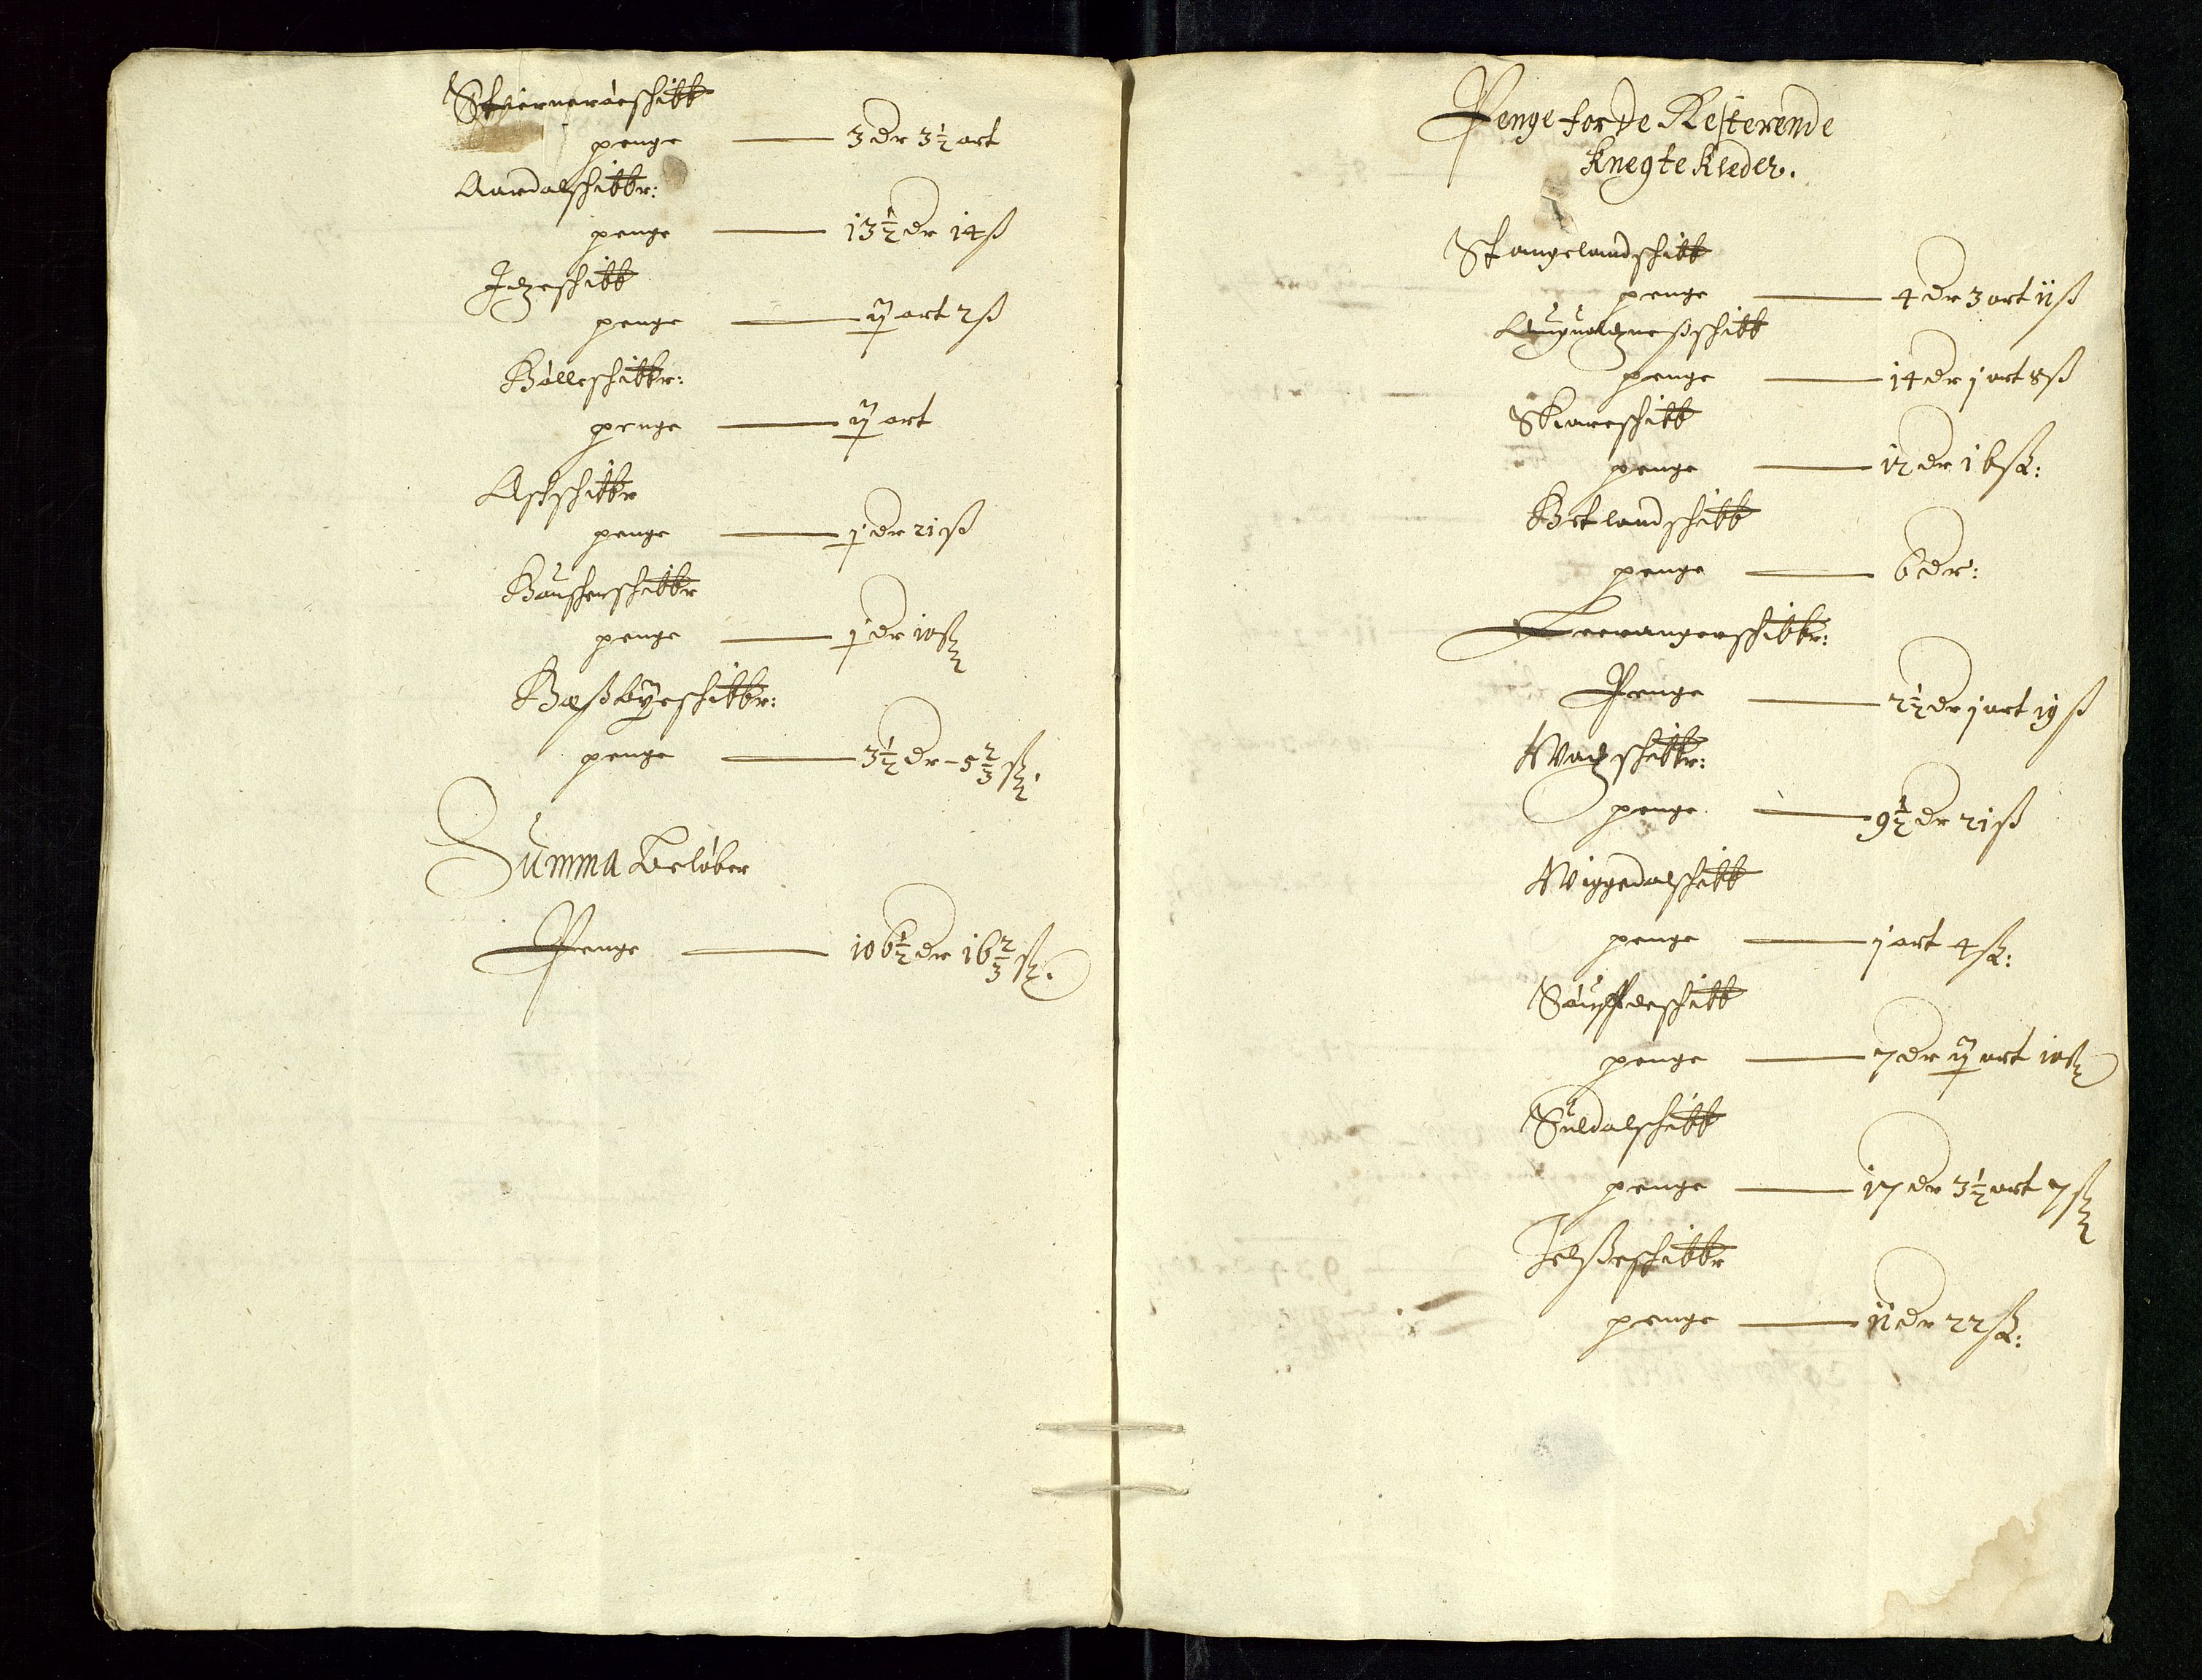 Stjerneröeschibb
penge — 3 dr 3½ ort
Aardalschibbr:
penge — 13½ dr 14 ß
Idzeschibb
penge — ij ort 2 ß
Bölleschibbr:
penge — ij ort
Aschschibbr
penge — j dr 21 ß
Bausherschibbr
penge — j dr 10 ß
Bøsßbÿeschibbr:
penge — 3½ dr – 5⅔ ß.
Summa belöber
Penge — 106½ dr 16⅔ ß.
Penge for de Resterende
Knegte Kleder.
Stangelandschibb
penge — 4 dr 3 ort 11 ß
Augualdzneßschibb
penge — 14 dr j ort 8 ß
Skiareschibb
penge — 12 dr 16 ß:
Birklandschibb
penge — 6 dr:
Leerangerschibbr:
Penge — 2½ dr j ort 19 ß
Wadzschibbr:
penge — 9½ dr 21 ß
Wiggedalschibb
penge — j ort 4 ß:
Sauffdeschibb
penge — 7 dr ij ort 10 ß
Suldalschibb
penge — 17 dr 3½ ort 7 ß
Jelßeschibbr
penge — 11 dr 22 ß: